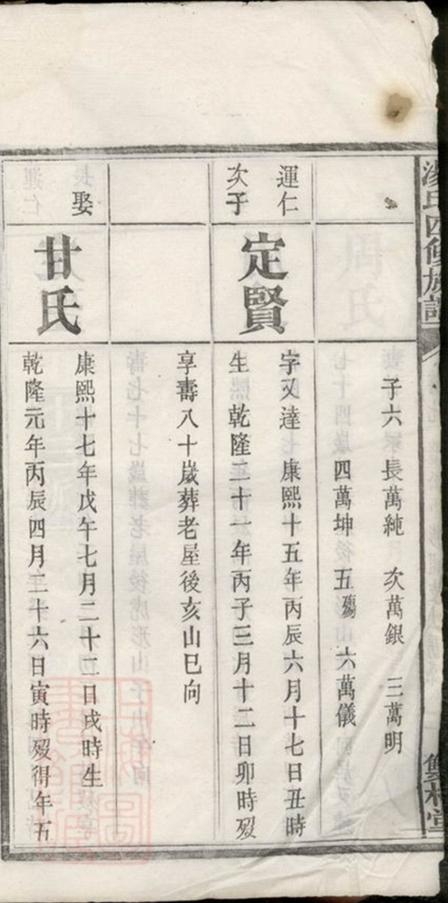 湯氏四修族譜
子六 長萬純 次萬銀 三萬明
四萬坤 五殤 六萬儀
運仁
次子
定賢
字又達 康熙十五年丙辰六月十七日丑時
生 乾隆二十一年丙子三月十二日卯時歿
享壽八十歲葬老屋後亥山巳向
娶
甘氏
康熙十七年戊午七月二十二日戌時生
乾隆元年丙辰四月二十六日寅時歿得年五